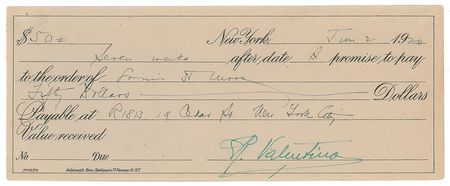 $50 New York, Jun 2 1920
Seven weeks after date I promise to pay
to the order of H Moore
Fifty Dollars Dollars
Payable at R1813 19 Cedar St. New York City
Value received
No. Due R. Valentino
Goldsmith Bros. Stationers, 77 Nassau St. N.Y.